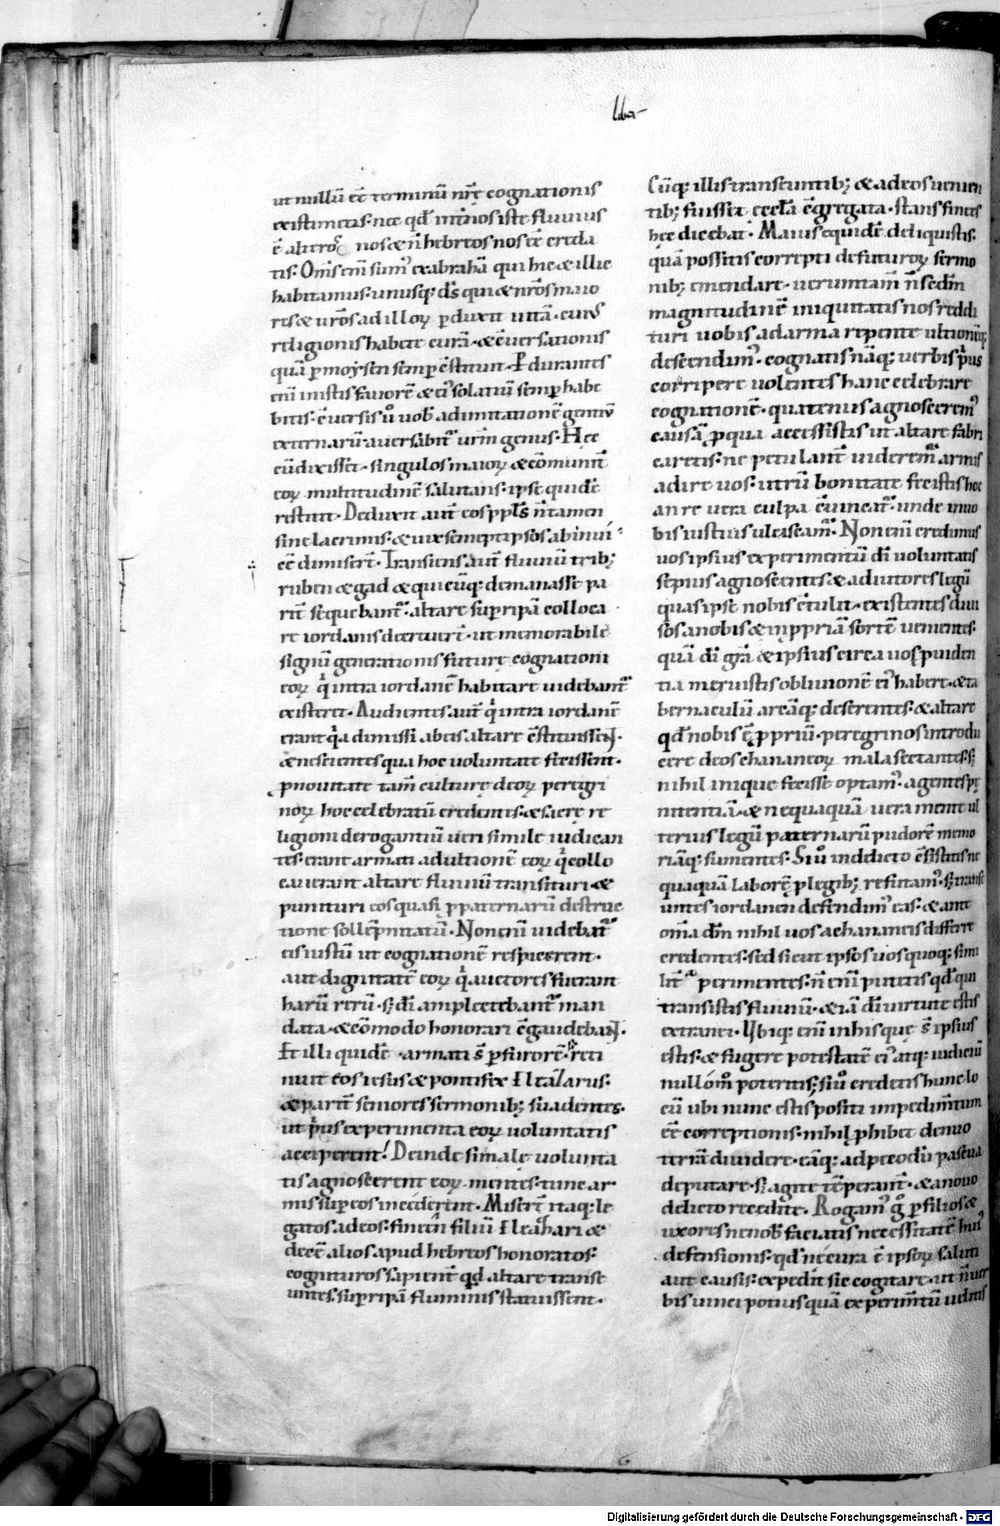 liber
ut nullū eē terminū nr̄ę cognationis
existimetis· nec qđ int̄ nos iste fluuius
ē alteros nos & n̄ hebreos nos eē creda
tis· Om̄s enī sum᷒ ex abrahā qui hic & illic
habitamus· unusq; d̄s qui & nr̄os maio
res & ur̄os ad illoꝝ ꝑduxit uitā· cuius
religionis habete curā· & c̄uersationis
quā ꝑ moysen semꝑ c̄stituit· Pdurantes
enī in istis fauorē & ei᷒ solatiū semꝑ habe
bitis· c̄uersis ū uob̄ ad imitationē gentiū
externarū auersabit᷒ ur̄m genus· Hec
cū dixisset· singulos maioꝝ & cōmunit̄
eoꝝ multitudinē salutans· ipse quidē
restitit· Deduxit aut̄ eos ppl̄s n̄ tamen
sine lacrimis· & uix semetipsos ab inui
cē dimiser̄t· Transiens aut̄ fluuiū trib;
ruben & gad & quicūq; de manasse pa
rit̄ sequebant᷒· altare suꝑ ripā colloca
re iordanis decreuer̄t· ut memorabile
signū generationis futurę cognationi
eoꝝ q̄ intra iordanē habitare uidebant᷒
existeret· Audientes aut̄ q̄ intra iordanē
erant qa dimissi ab eis altare c̄stituissent·
& nescientes qua hoc uoluntate fecissent·
ꝓ nouitate tam̄ culturę deoꝝ peregri
noꝝ hoc celebratū credentes· & sacrę re
ligioni derogantiū ueri simile iudican
tes· erant armati ad ultionē eoꝝ q̄ collo
cauerant altare fluuiū transituri· &
punituri eos quasi ꝓ paternarū destruc
tione sollēpnitatū· Non enī uidebat᷒
eis iustū ut cognationē respicerent·
aut dignitatē eoꝝ q̄ auctores fuerant
harū rerū· s; di amplectebant᷒ man
data· & eō modo honorari c̄gaudebant·
Et illi quidē armati s̄ ꝑ furorē· reti
nuit eos iesus & pontifex Eleazarus·
& parit̄ seniores sermonib; suadentes·
ut p̄us experimenta eoꝝ uoluntatis
acciperent! Deinde si male uolunta
tis agnoscerent eoꝝ mentes· tunc ar
mis suꝑ eos incederent· Miser̄t itaq; le
gatos ad eos· fineen filiū Eleazari &
decē alios apud hebreos honoratos·
cognituros sapient̄ qđ altare transe
untes· suꝑ ripā fluminis statuissent·
Cūq; illis transeuntib; & ad eos uenien
tib; fuisset eccl̄a c̄gregata· stans finees
hec dicebat· Maius equidē deliquistis·
quā possitis correpti de futuroꝝ sermo
nib; emendare· uerumtam̄ n̄ scdm
magnitudinē iniquitatis nos reddi
turi uobis ad arma repente ultionēq;
descendim᷒· cognatis nāq; uerbis p̄us
corripere uolentes hanc celebrare
cognitionē· quatenus agnoscerem᷒
causā ꝑ qua accessistis ut altare fabri
caretis· ne petulant̄ uiderem᷒ armis
adire uos· utrū bonitate fecistis hoc
an re uera culpa c̄uincat᷒· unde in uo
bis iustius ulciscam᷒· Non enī credimus
uos ipsius experimentū di uoluntatis
sepius agnoscentes· & aduitores legū
quas ipse nobis c̄tulit· existentes diui
sos a nobis & in ꝓpriā sortē uenientes·
quā di grā & ipsius circa uos ꝓuiden
tia meruistis obliuionē ei᷒ habere· & ta
bernaculū arcāq; deserentes· & altare
qđ nobis ē ꝓpriū· peregrinos introdu
cere deos chananeoꝝ mala sectantes· s;
nihil inique fecisse optam᷒· agentes pę
nitentiā· & nequaquā uera mente ul
terius legū paternarū pudorē memo
riāq; sumentes· Si ū in delicto c̄sistitis ne
quaquā laborē ꝓ legib; refutam᷒· s; transe
untes iordanen defendim᷒ eas· & ante
om̄a dm̄ nihil uos a chananeis differre
credentes· sed sicut ipsos uos quoq; simi
lit᷒ perimentes· n̄ enī putetis qđ qui
transistis fluuiū· & iā di uirtute estis
extranei· Ubiq; enī in his quę s̄ ipsius
estis· & fugere potestatē ei᷒ atq; iudiciū
null om̄ poteritis; si ū creditis hunc lo
cū ubi nunc estis positi impedimtum
eē correptionis· nihil ꝓhibet denuo
terrā diuidere· eāq; ad p̄coduum pascua
deputare· s; agite tēperant̄· & a nouo
delicto recedite· Rogam᷒ g̊ ꝑ filios &
uxores ne nob̄ faciatis necessitatē hui᷒
defensionis· qđ ne cura ē ipsoꝝ saluti
aut causis· expedit sic cogitare· ut n̄ uer
bis uinci potius quā experimtū uelitis
Digitalisierung gefördert durch die Deutsche Forschungsgemeinschaft - DFG